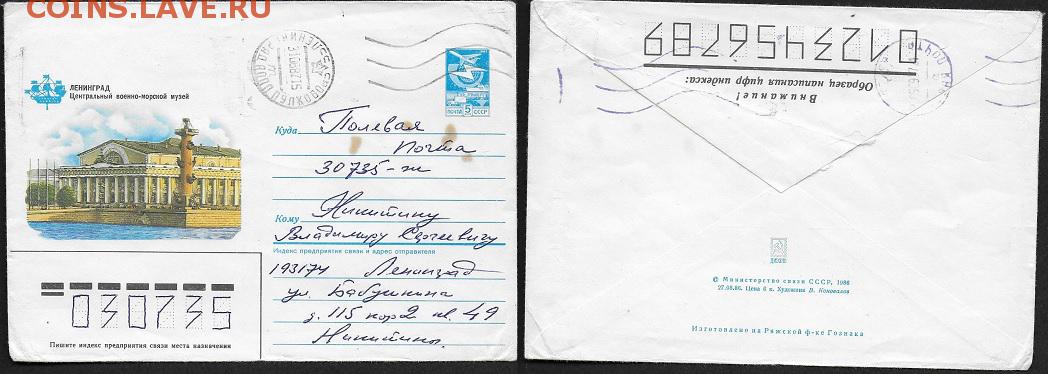 COINS.LAVE.RU
ЛЕНИНГРАД
Центральный военно-морской музей
ПОЧТА 5 СССР
Куда Полевая
Почта
30735-ж
Кому Никитину
Владимиру Сергеевичу
Индекс предприятия связи и адрес отправителя
193174 Ленинград
ул. Бабушкина
д. 115 кор 2 кв. 49
Никитины.
030735
Пишите индекс предприятия связи места назначения
Внимание!
Образец написания цифр индекса:
0123456789
© Министерство связи СССР, 1986
27.08.86. Цена 6 к. Художник В. Коновалов
Изготовлено на Ряжской ф-ке Гознака